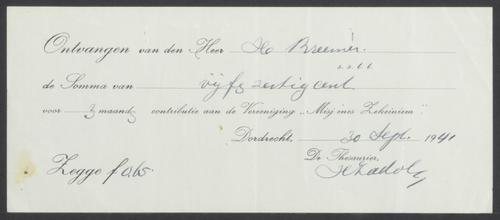 Ontvangen van den Heer Ho Breemer.
de Somma van vijf & zestig cent
voor 3 maand contributie aan de Vereeniging „Misj'enes Zekeiniem"
Dordrecht, 30 Sept. 1941
De Thesaurier,
Zegge f 0,65